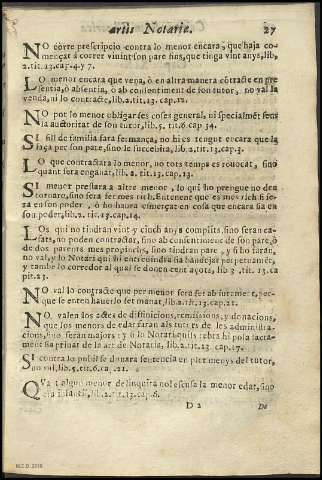 artis Notariæ. 27
NO corre prescripcio contra lo menor encara, que haja co-
mençat á correr vivint son pare fins, que tinga vint anys, lib,
2.tit.13.cap.4.y 7.
LO menor encara que vena, ò en altra manera còtracte en pre
sentia, ò absentia, ò ab consentiment de son tutor, no val la
venda, ni lo contracte, lib.2.tit.13.cap.12.
NO pot lo menor obligarses coses general, ni specialmèt sens
la auctoritat de son tutor, lib.5.tit.6 cap 34.
SI fill de familia fara fermança, no hi es tengut encara que la
faça per son pare, sino lo succehira, lib.2.tit.13.cap.3.
LO que contractara lo menor, no tots temps es revocat, sino
quant sera enganat, lib.2. tit.13.cap.13.
SI menor prestara a altre menor, lo qui ho prengue no deu
tornarho, sino fera fet mes rich. Entenent que es mes rich si se-
ra en son poder, ò ho haura esmerçat en cosa que encara sia en
son poder, lib.2. tit.13.cap.14.
LOs qui no tindràn vint y cinch anys complits, sino seràn ca-
sats, no poden contractar, sino ab consentiment de son pare, ò
de dos parents mes propinchs, sino tindràn pare, y si ho faràn,
no val, y lo Notari qui hi entrevindra sia bandejat perpetuamèt,
y tambe lo corredor al qual se donen cent açots, lib 3 .tit.13.ca
pit.23.
NO val lo contracte que per menor sera fet ab jurament, per-
que se enten haverlo fet manat, lib.2.tit.13.cap.21.
NO valen los actes de diffinicions, remissions, y donacions,
que los menors de edat faràn als tutors de les administra-
cions, sino seràn majors: y si lo Notari quils rebra hi posa jura-
ment sia privat de la art de Notaria, lib.2.tit.13 cap.17.
SI contra lo pubil se donara sentencia en plet menys del tutor,
no val, lib.5.tit.6.ca .21.
QVant algun menor delinquira nol escusa la menor edat, sino
era infantil, lib.2.tit.13.cap.6.
D 2 De
M.C.D. 2018